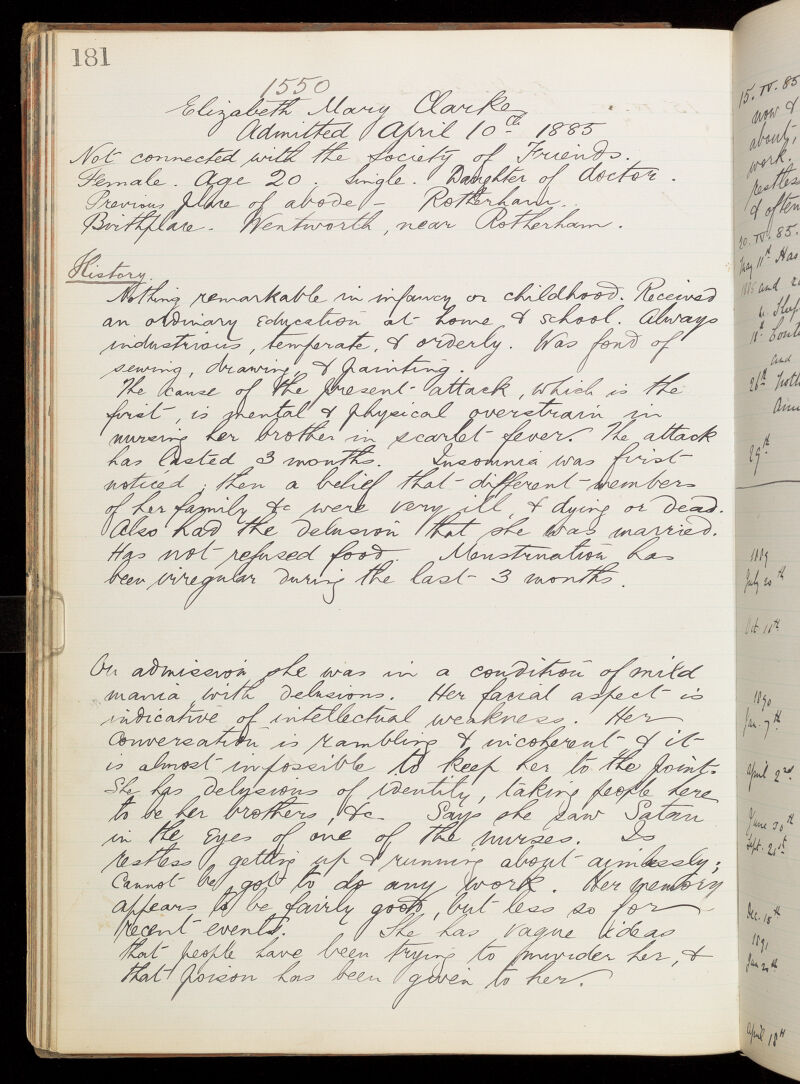 181
1550
Elizabeth Mary Clarke
Admitted April 10th 1885
Not connected with the Society of Friends.
Female. Age 20. Single. Daughter of doctor.
Previous place of abode - Rotherham.
Birthplace. Wentworth, near Rotherham.
History.
Nothing remarkable in infancy or childhood. Received
an ordinary education at home & school. Always
industrious, temperate, & orderly. Was fond of
sewing, drawing, & painting.
The cause of the present attack, which is the
first, is mental & physical overstrain in
nursing her brother in scarlet fever. The attack
has lasted 3 months. Insomnia was first
noticed; then a belief that different members
of her family &c were very ill, & dying or dead.
Also had the delusion that she was married.
Has not refused food. Menstruation has
been irregular during the last 3 months.
On admission she was in a condition of mild
mania with delusions. Her facial aspect is
indicative of intellectual weakness. Her
conversation is rambling & incoherent & it
is almost impossible to keep her to the point.
She has delusions of identity, taking people here
to be her brothers, &c. Says she saw Satan
in the eyes of one of the nurses. Is
restless, getting up & running about aimlessly;
cannot be got to do any work. Her memory
appears to be fairly good, but less so for
recent events. She has vague ideas
that people have been trying to murder her, &
that poison has been given to her.
15. IV. 85
now &
about,
work.
restless
& often
20. IV. 85.
May 11th Has
1885 and
18th
and
26th
29th
1889
July 20th
Oct. 11th
1890
Jan. 7th
April 2nd
June 30th
Sept. 21st
Dec. 15th
1891
Jan 20th
April 18th